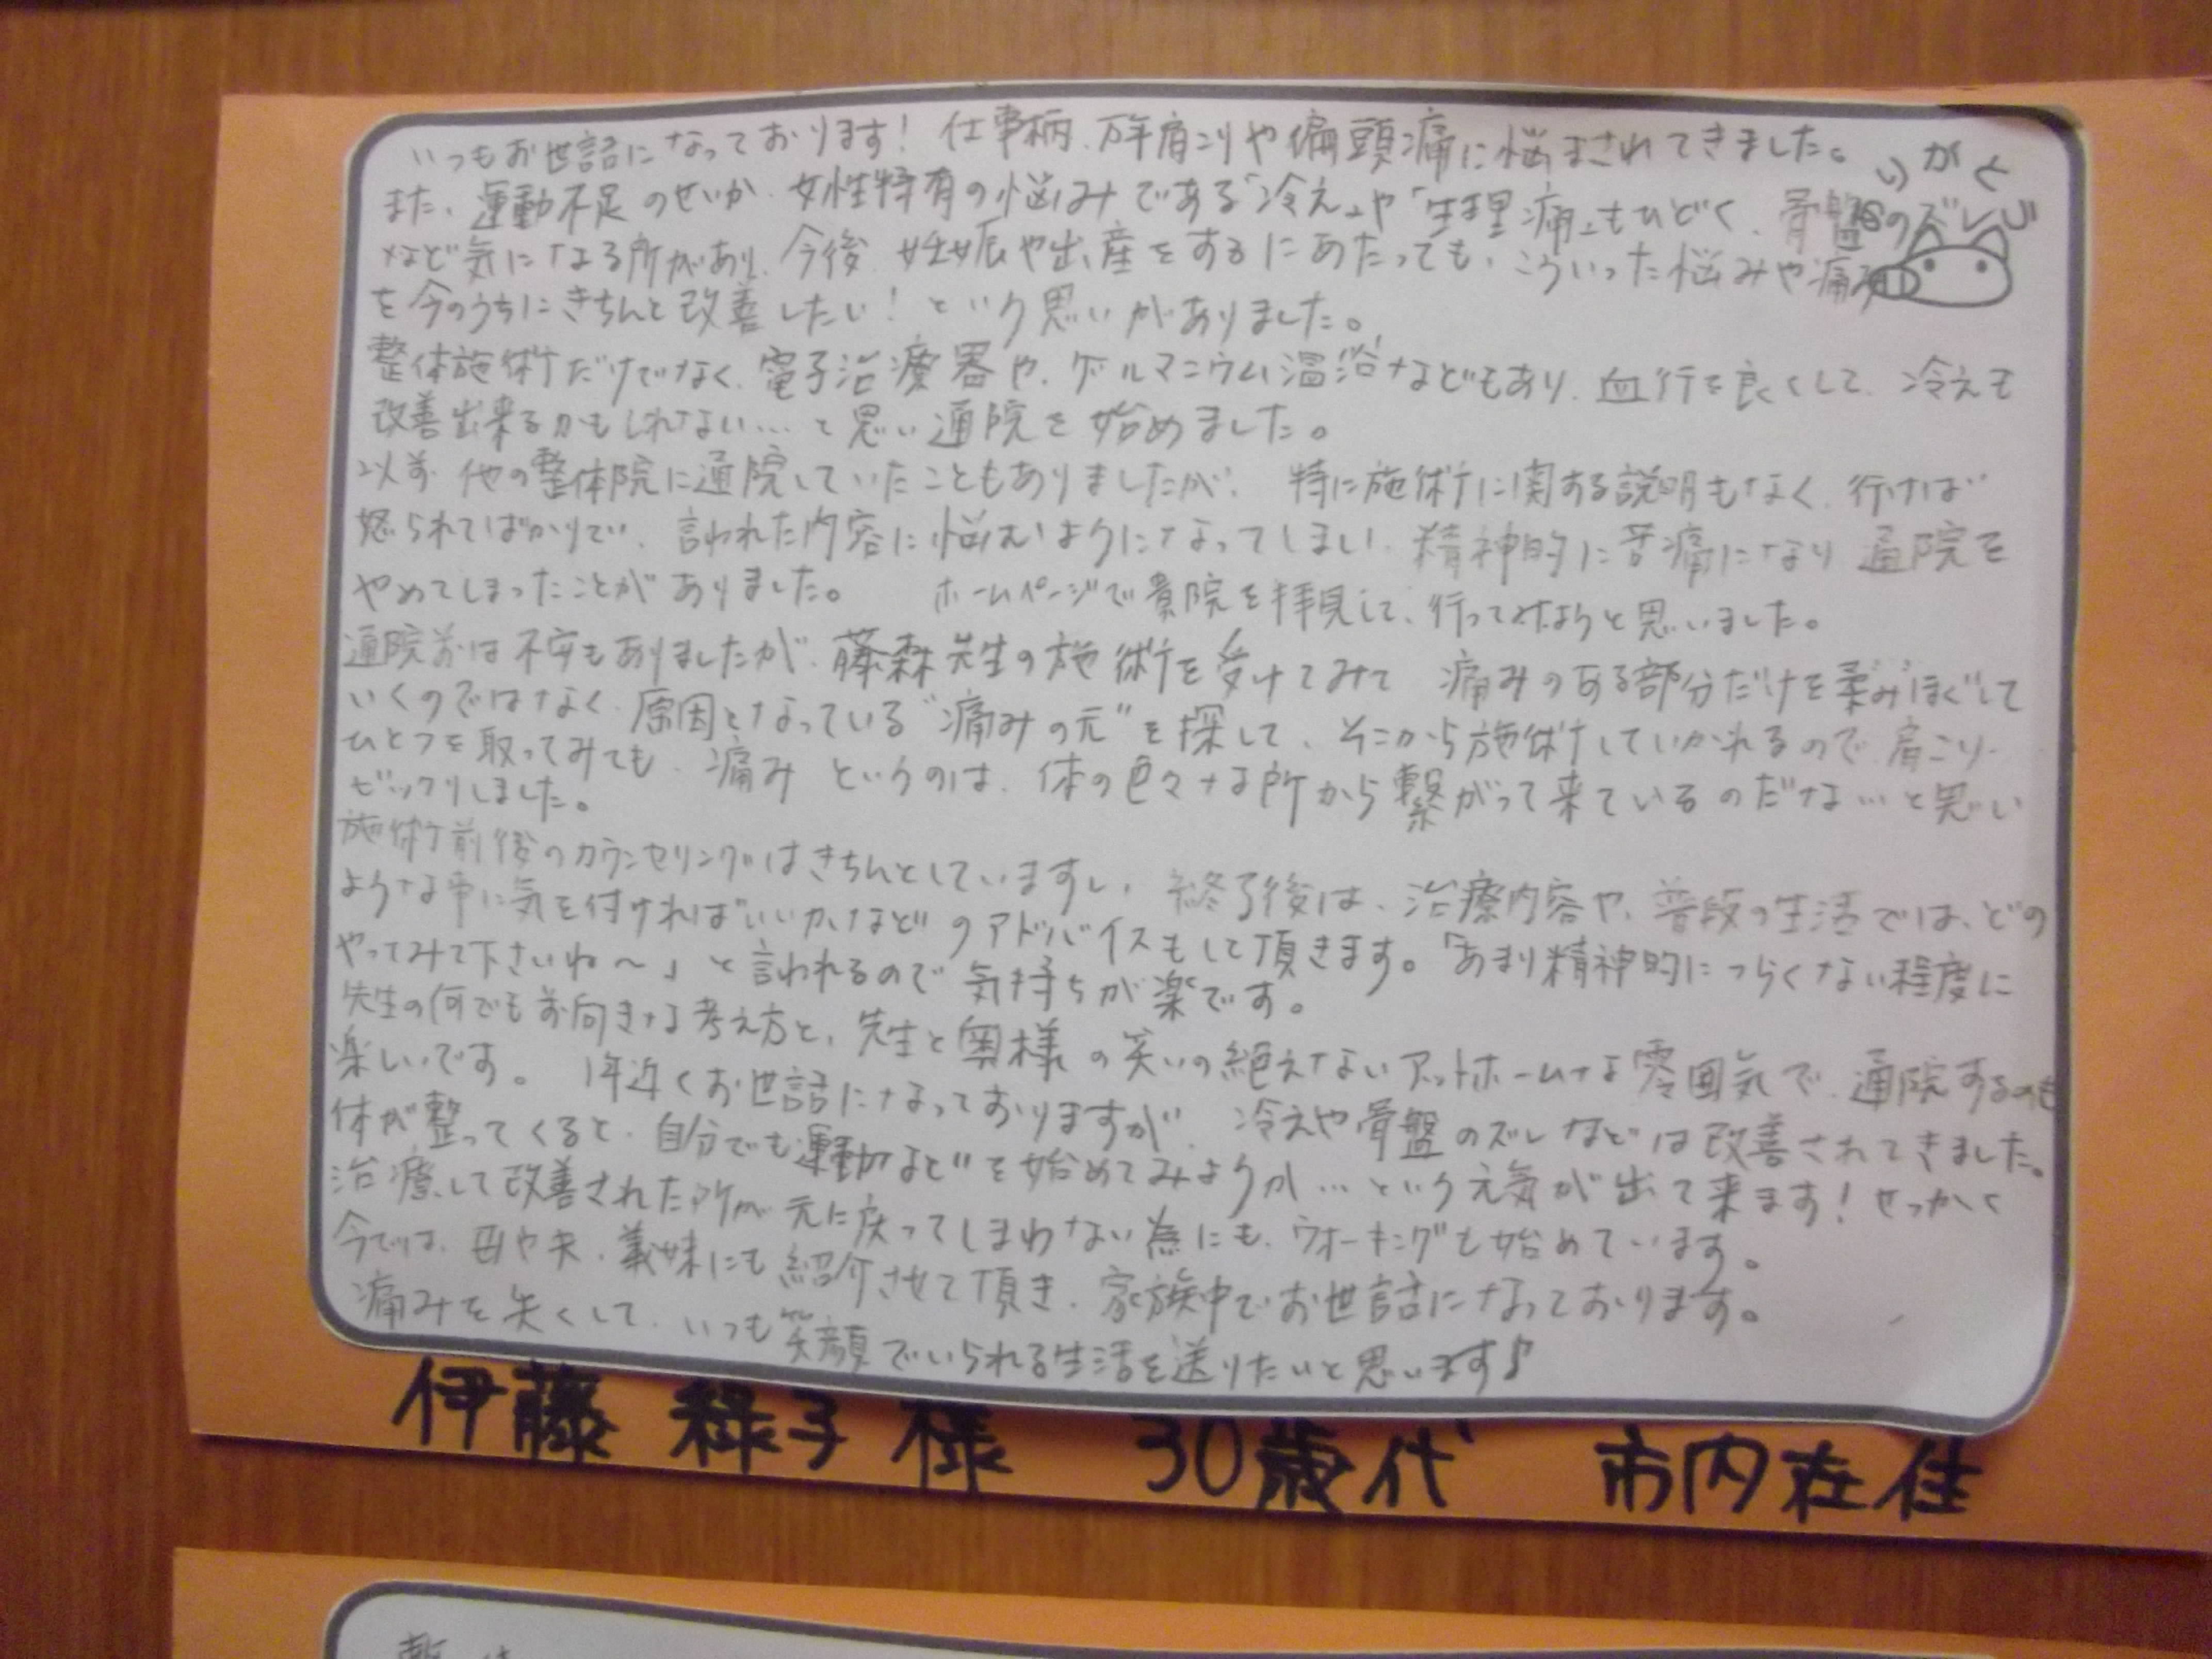 いつもお世話になっております! 仕事柄、万年肩こりや偏頭痛に悩まされてきました。
また、運動不足のせいか、女性特有の悩みである「冷え」や「生理痛」もひどく、骨盤のズレ
など気になる所があり、今後、妊娠や出産をするにあたっても、こういった悩みや痛み
を今のうちにきちんと改善したい! という思いがありました。
整体施術だけでなく、電子治療器や、ゲルマニウム温浴などもあり、血行を良くして、冷えも
改善出来るかもしれない…と思い通院を始めました。
以前 他の整体院に通院していたこともありましたが、特に施術に関する説明もなく、行けば
怒られてばかりで、言われた内容に悩むようになってしまい、精神的に苦痛になり 通院を
やめてしまったことがありました。 ホームページで貴院を拝見して、行ってみようと思いました。
通院前は不安もありましたが、藤森先生の施術を受けてみて 痛みのある部分だけを柔みほぐして
いくのではなく、原因となっている"痛みの元"を探して、そこから施術していかれるので、肩こり
ひとつを取ってみても、痛み というのは、体の色々な所から繋がって来ているのだな…と思い
ビックリしました。
施術前後のカウンセリングはきちんとしていますし、終了後は、治療内容や、普段の生活では、どの
ような事に気を付ければいいか、などのアドバイスもして頂きます。「あまり精神的につらくない程度に
やってみて下さいね~」と言われるので気持ちが楽です。
先生の何でも前向きな考え方と、先生と奥様の笑いの絶えないアットホームな雰囲気で、通院するのも
楽しいです。 1年近くお世話になっておりますが、冷えや骨盤のズレなどは改善されてきました。
体が整ってくると、自分でも運動などを始めてみようか…という元気が出て来ます! せっかく
治療して改善された所が元に戻ってしまわない為にも、ウォーキングも始めています。
今では、母や夫、義妹にも紹介させて頂き、家族中でお世話になっております。
痛みを失くして、いつも笑顔でいられる生活を送りたいと思います♪
伊藤 緑子様 30歳代 市内在住